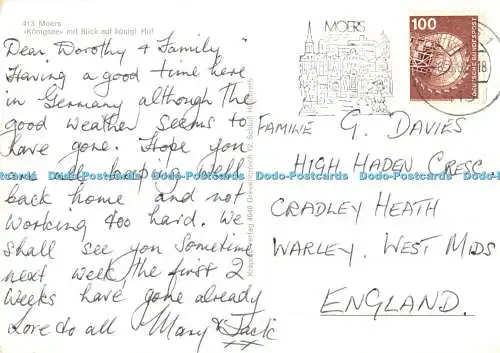 413 Moers
«Königsee» mit Blick auf königl. Hof
Dear Dorothy & Family
Having a good time here
in Germany although the
good weather seems to
have gone. Hope you
are all keeping well
back home and not
working too hard. We
shall see you sometime
next week, the first 2
weeks have gone already
Love to all Mary & Jack
xx
MOERS
100
DEUTSCHE BUNDESPOST
18
FAMILIE G. DAVIES
HIGH HADEN CRESC
CRADLEY HEATH
WARLEY. WEST MIDS
ENGLAND.
Dodo-Postcards Dodo-Postcards Dodo-Postcards Dodo-Postcards Dodo-Postcards Dodo-Postcards